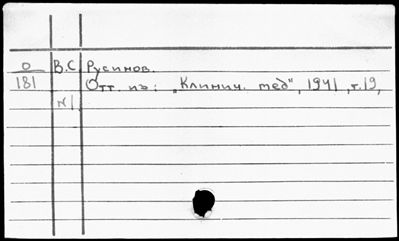 О В.С. Русинов.
181 Отт. из: „Клинич. мед", 1941, т.19,
N1.